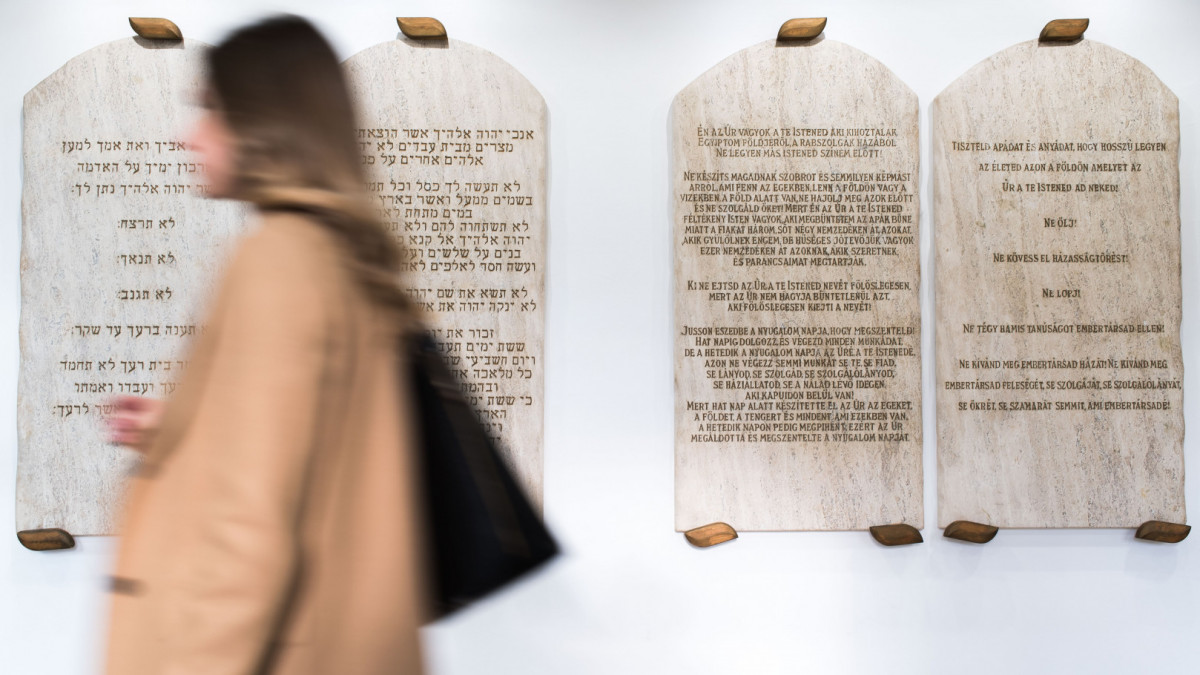 אנכי יהוה אלהיך אשר
מצרים מבית עבדים לא
אלהים אחרים על
לא תעשה לך פסל וכל
בשמים ממעל ואשר בארץ
במים מתחת
לא תשתחוה להם ולא
יהוה אלהיך אל קנא
בנים על שלשים
ועשה חסד לאלפים
לא תשא את שם
לא ינקה יהוה את
זכור את
ששת ימים
ויום השביעי
כל מלאכה
כי ששת
אביך ואת אמך למען
יארכון ימיך על האדמה
אשר יהוה אלהיך נתן לך:
לא תרצח:
לא תנאף:
לא תגנב:
לא תענה ברעך עד שקר:
בית רעך לא תחמד
רעך ועבדו ואמתו
לרעך:
ÉN AZ ÚR VAGYOK A TE ISTENED AKI KIHOZTALAK
EGYIPTOM FÖLDJÉRŐL A RABSZOLGÁK HÁZÁBÓL
NE LEGYEN MÁS ISTENED SZÍNEM ELŐTT!
NE KÉSZÍTS MAGADNAK SZOBROT ÉS SEMMILYEN KÉPMÁST
ARRÓL AMI FENN AZ EGEKBEN, LENN A FÖLDÖN VAGY A
VIZEKBEN A FÖLD ALATT VAN, NE HAJOLJ MEG AZOK ELŐTT
ÉS NE SZOLGÁLD ŐKET! MERT ÉN AZ ÚR A TE ISTENED
FÉLTÉKENY ISTEN VAGYOK, AKI MEGBÜNTETEM AZ APÁK BŰNE
MIATT A FIAKAT HÁROM, SŐT NÉGY NEMZEDÉKEN ÁT AZOKAT,
AKIK GYŰLÖLNEK ENGEM, DE HŰSÉGES JÓTEVŐJÜK VAGYOK
EZER NEMZEDÉKEN ÁT AZOKNAK, AKIK SZERETNEK,
ÉS PARANCSAIMAT MEGTARTJÁK.
KI NE EJTSD AZ ÚR, A TE ISTENED NEVÉT FÖLÖSLEGESEN,
MERT AZ ÚR NEM HAGYJA BÜNTETLENÜL AZT,
AKI FÖLÖSLEGESEN KIEJTI A NEVÉT!
JUSSON ESZEDBE A NYUGALOM NAPJA, HOGY MEGSZENTELD!
HAT NAPIG DOLGOZZ, ÉS VÉGEZD MINDEN MUNKÁDAT,
DE A HETEDIK A NYUGALOM NAPJA AZ ÚRÉ, A TE ISTENEDÉ,
AZON NE VÉGEZZ SEMMI MUNKÁT SE TE, SE FIAD,
SE LÁNYOD, SE SZOLGÁD, SE SZOLGÁLÓLÁNYOD,
SE HÁZIÁLLATOD, SE A NÁLAD LÉVŐ IDEGEN,
AKI KAPUIDON BELÜL VAN!
MERT HAT NAP ALATT KÉSZÍTETTE EL AZ ÚR AZ EGEKET,
A FÖLDET, A TENGERT ÉS MINDENT, AMI EZEKBEN VAN,
A HETEDIK NAPON PEDIG MEGPIHENT, EZÉRT AZ ÚR
MEGÁLDOTTA ÉS MEGSZENTELTE A NYUGALOM NAPJÁT.
TISZTELD APÁDAT ÉS ANYÁDAT, HOGY HOSSZÚ LEGYEN
AZ ÉLETED AZON A FÖLDÖN AMELYET AZ
ÚR A TE ISTENED AD NEKED!
NE ÖLJ!
NE KÖVESS EL HÁZASSÁGTÖRÉST!
NE LOPJ!
NE TÉGY HAMIS TANÚSÁGOT EMBERTÁRSAD ELLEN!
NE KÍVÁND MEG EMBERTÁRSAD HÁZÁT! NE KÍVÁND MEG
EMBERTÁRSAD FELESÉGÉT, SE SZOLGÁJÁT, SE SZOLGÁLÓLÁNYÁT,
SE ÖKRÉT, SE SZAMARÁT SEMMIT, AMI EMBERTÁRSADÉ!